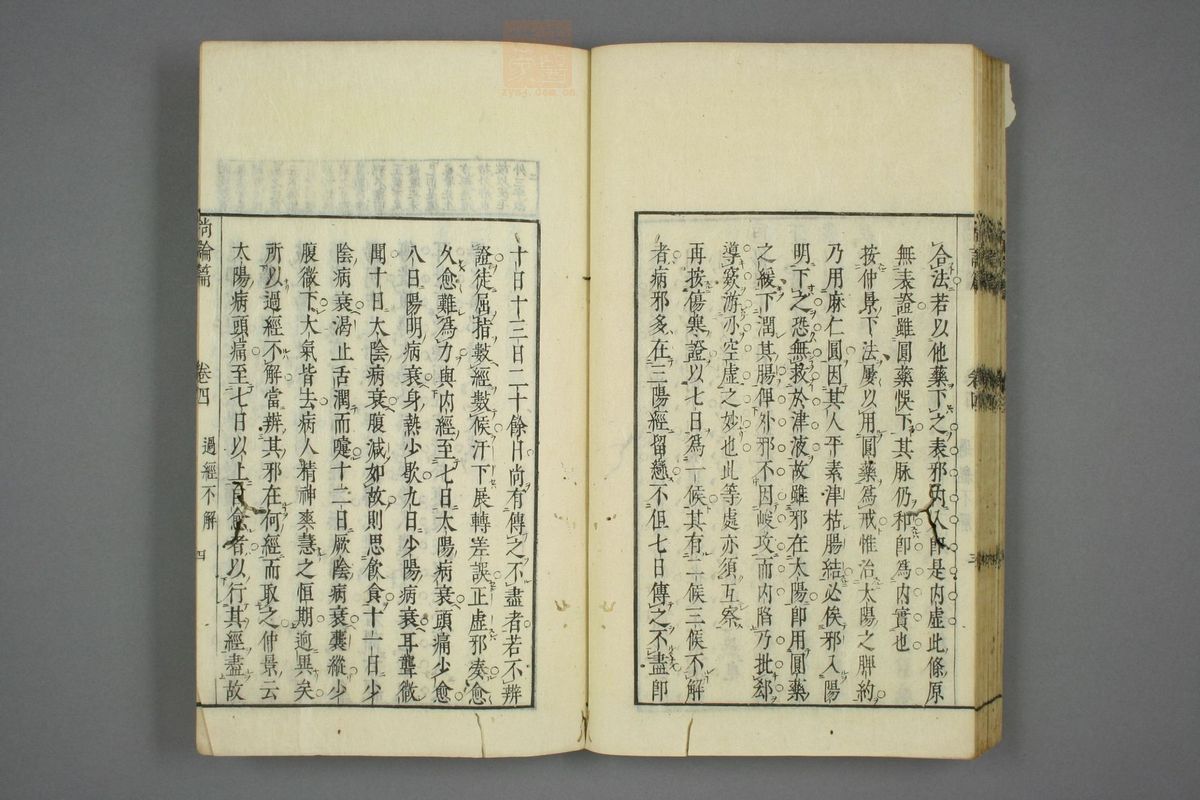 合法若以他藥下之表邪內入卽是內虛此條原
無表證雖圓藥悞下其脉仍和卽爲內實也
按仲景下法屢以用圓藥爲戒惟治太陽之脾約
乃用麻仁圓因其人平素津枯腸結必俟邪入陽
明下之恐無救於津液故雖邪在太陽卽用圓藥
之緩下潤其腸俾外邪不因峻攻而內陷乃批郄
導窾游刃空虛之妙也此等處亦須互察
再按傷寒證以七日爲一候其有二候三候不解
者病邪多在三陽經留戀不但七日傳之不盡卽
十日十三日二十餘日尚有傳之不盡者若不辨
證徒屈指數經數候汗下展轉差誤正虛邪湊愈
久愈難爲力與內經至七日太陽病衰頭痛少愈
八日陽明病衰身熱少歇九日少陽病衰耳聾微
聞十日太陰病衰腹減如故則思飲食十一日少
陰病衰渴止舌潤而嚔十二日厥陰病衰囊縱少
腹微下大氣皆去病人精神爽慧之恒期迥異矣
所以過經不解當辨其邪在何經而取之仲景云
太陽病頭痛至七日以上自愈者以行其經盡故
尚論篇 卷四 過經不解 四
zysj.com.cn